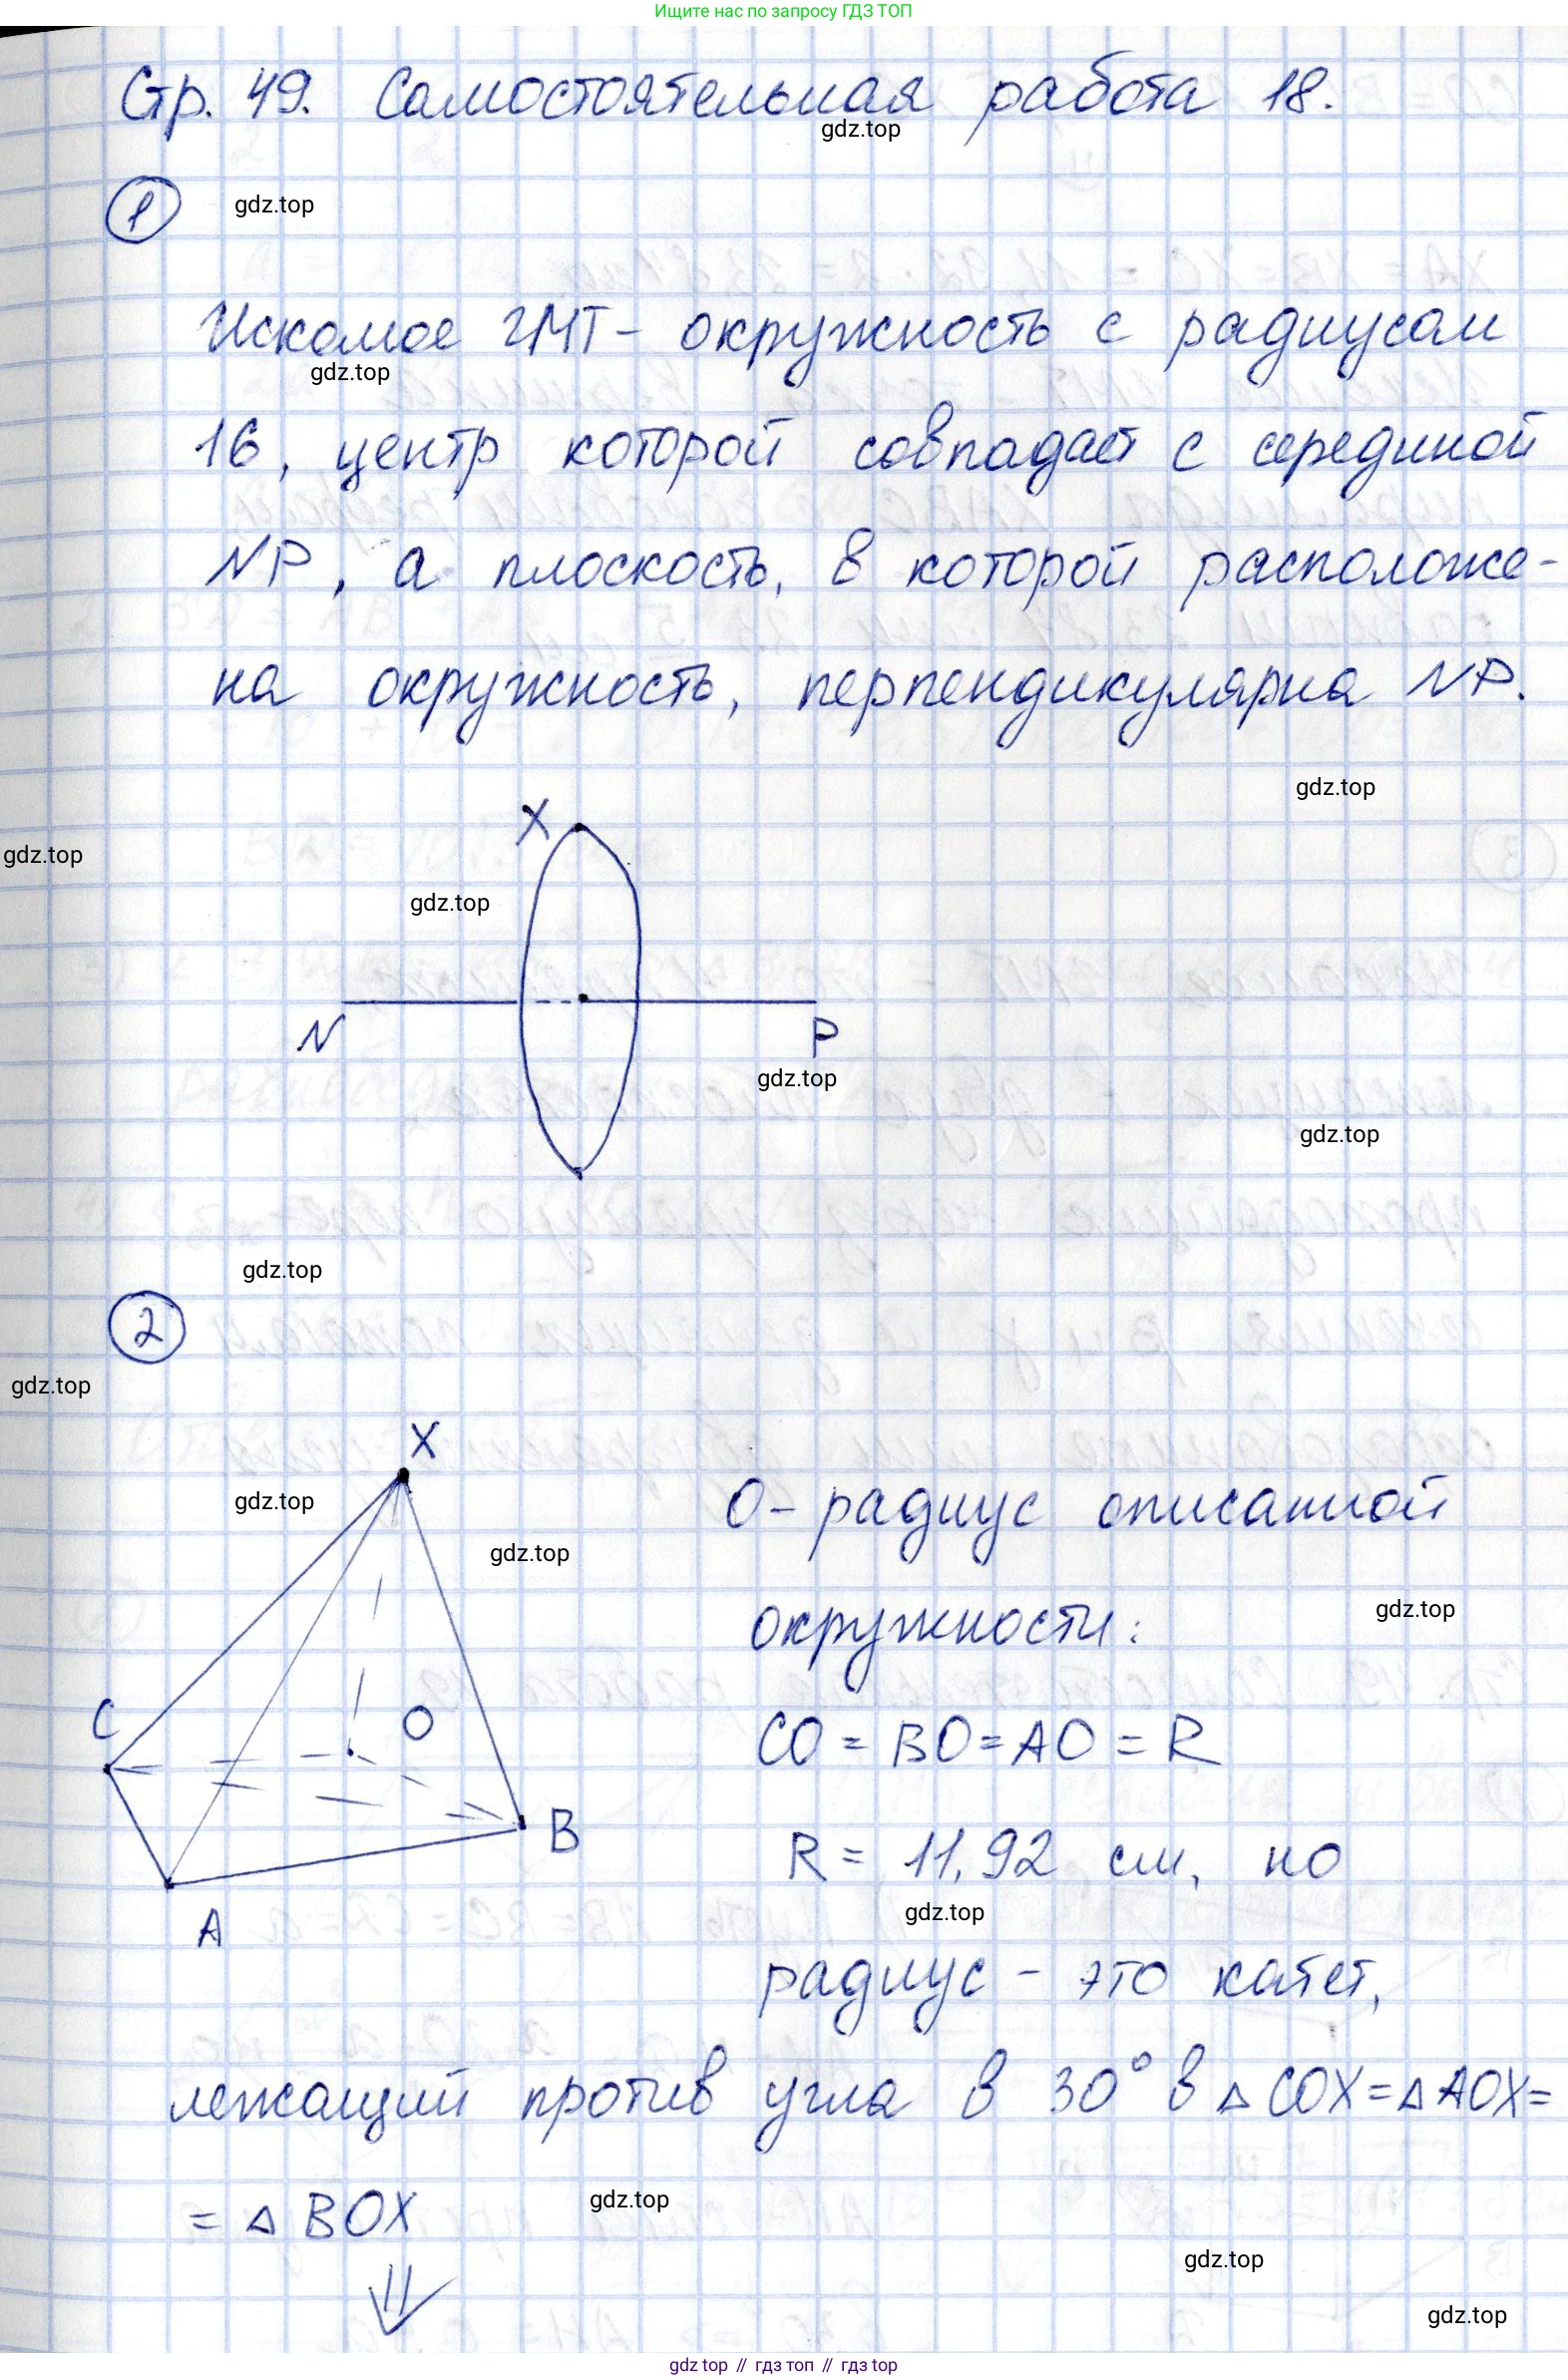 Ищите нас по запросу ГДЗ ТОП
Стр. 49. Самостоятельная работа 18.
gdz.top
1
gdz.top
Искомое ГМТ - окружность с радиусом
gdz.top
16, центр которой совпадает с серединой
NP, а плоскость, в которой расположе-
на окружность, перпендикулярна NP.
gdz.top
X
gdz.top
gdz.top
N
P
gdz.top
gdz.top
gdz.top
2
gdz.top
X
gdz.top
O - радиус описанной
gdz.top
gdz.top
окружности:
C
O
CO = BO = AO = R
B
R = 11,92 см, но
gdz.top
A
радиус - это катет,
лежащий против угла в 30° в △ COX = △ AOX =
= △ BOX
gdz.top
⇓
gdz.top
gdz.top
gdz top // гдз топ // гдз top